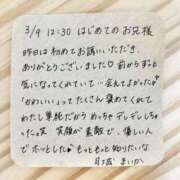 3/9 12:30 はじめてのお兄様
昨日は初めてお誘いいただき、
ありがとうございました♡ 前からずっと
気になってくれていて…会えてよかった♡
"かわいい"ってたくさん褒めてくれて
わたし単純だから めっちゃデレデレしちゃ
った。笑 笑顔が素敵で、優しい人
で ホッとした♡ もっともっと知りたいな
まいか